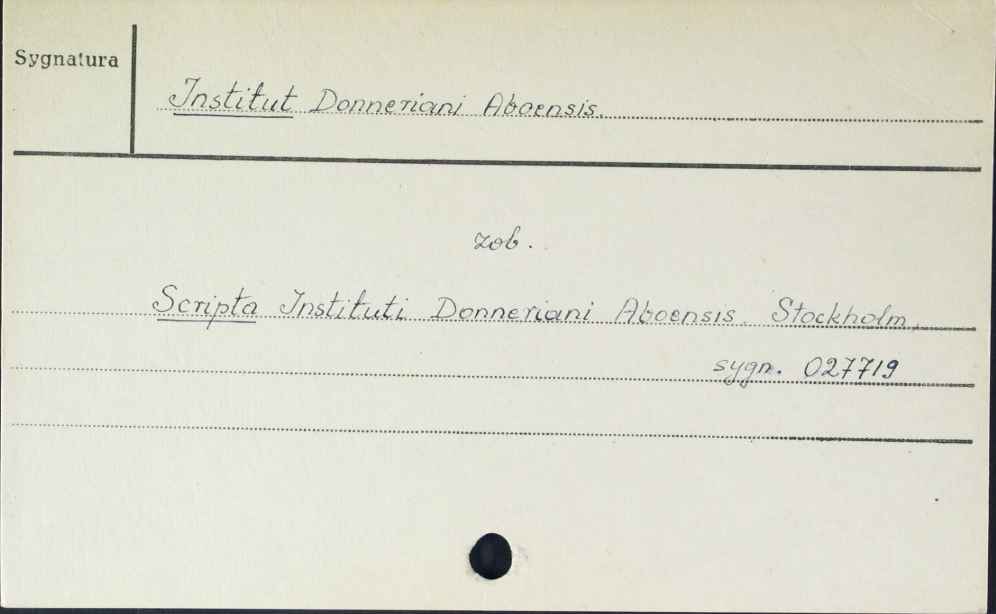 Sygnatura
Institut Donneriani Aboensis.
zob.
Scripta Instituti Donneriani Aboensis. Stockholm,
sygn. 027719